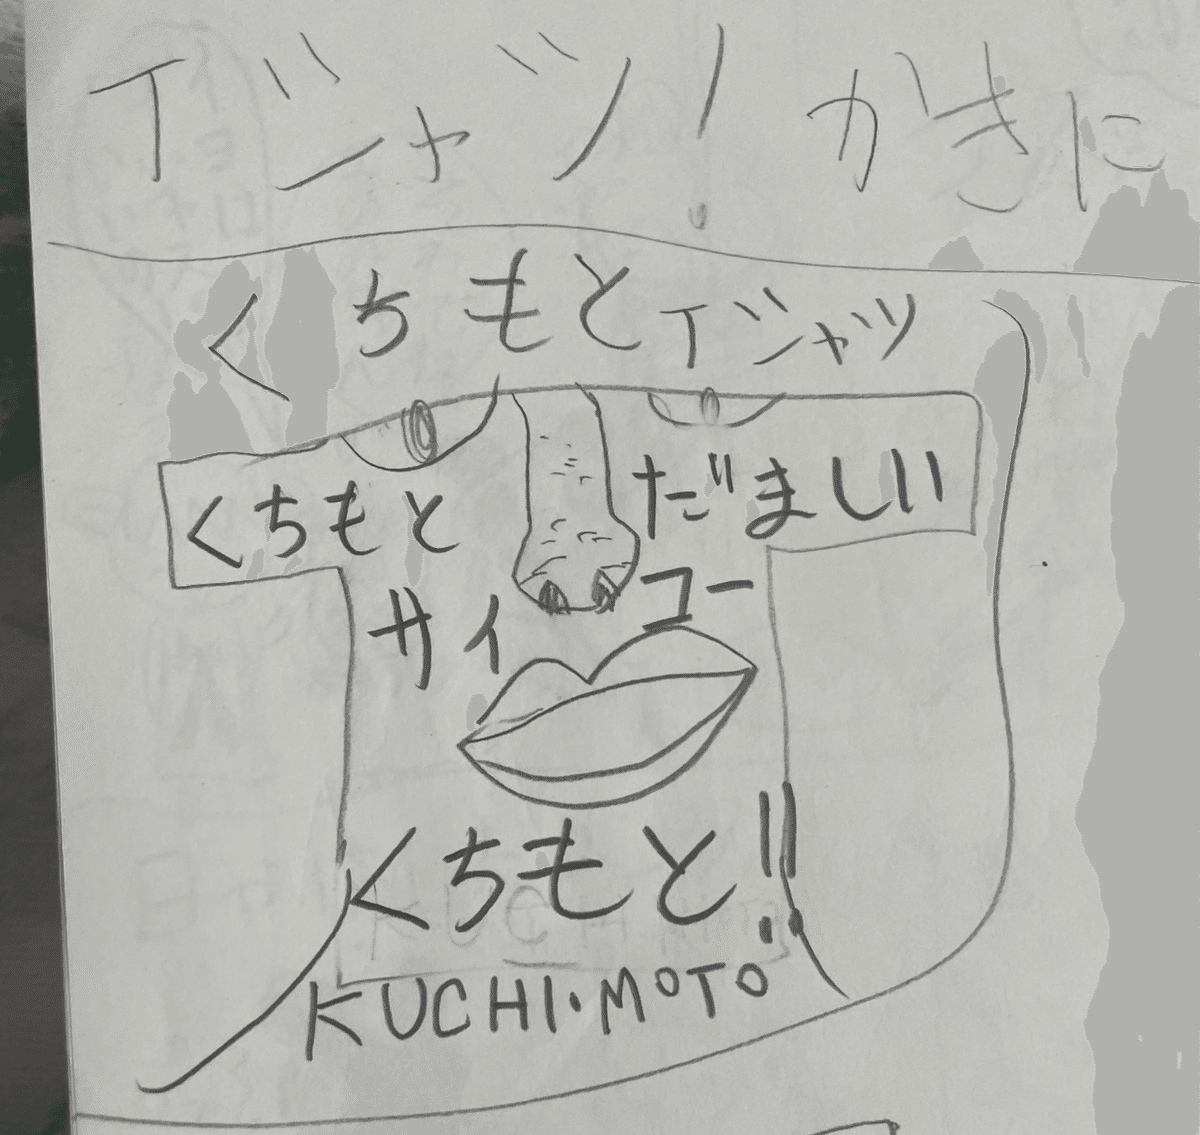 Tシャツ！かきに
くちもとTシャツ
くちもとだましい
サイコー
くちもと!!
KUCHI・MOTO